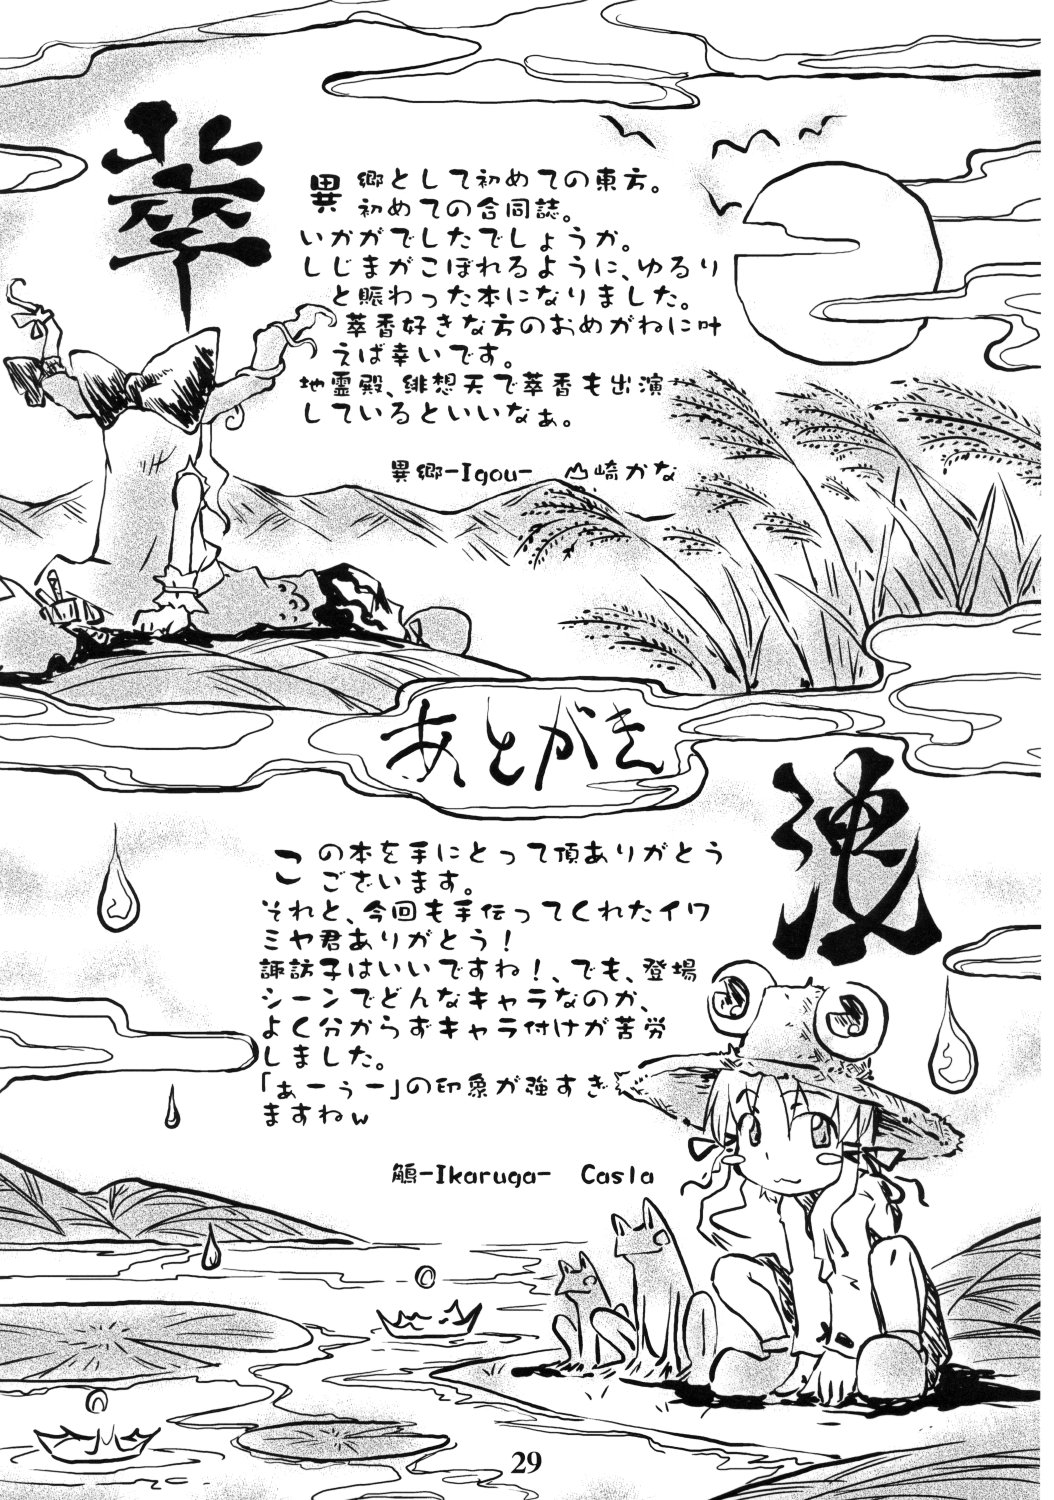 萃
異郷として初めての東方。
初めての合同誌。
いかがでしたでしょうか。
しじまがこぼれるように、ゆるり
と賑わった本になりました。
萃香好きな方のおめがねに叶
えば幸いです。
地霊殿、緋想天で萃香も出演
しているといいなぁ。
異郷-Igou- 山崎かな
あとがき
洩
この本を手にとって頂ありがとう
ございます。
それと、今回も手伝ってくれたイワ
ミヤ君ありがとう!
諏訪子はいいですね!、でも、登場
シーンでどんなキャラなのか、
よく分からずキャラ付けが苦労
しました。
「ぁーぅー」の印象が強すぎ
ますねw
鵤-Ikaruga- Casla
29